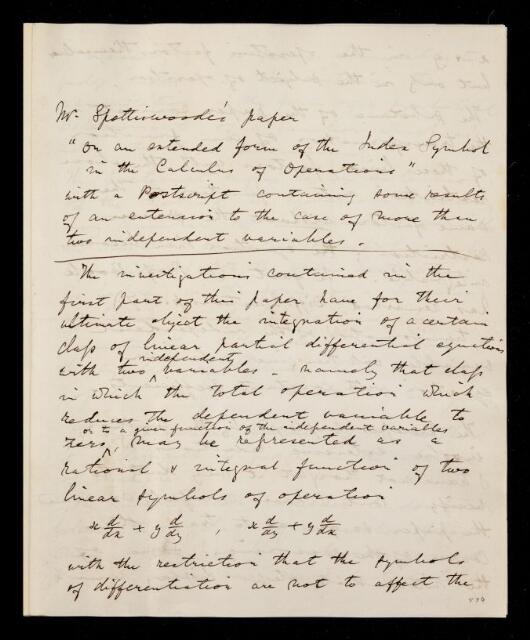 Mr Spottiswoode's paper
"On an extended form of the Index Symbol
in the Calculus of Operations"
with a Postscript containing some results
of an extension to the case of more than
two independent variables.
The investigations contained in the
first part of this paper have for their
ultimate object the integration of a certain
class of linear partial differential equations
with two independent variables – namely that class
in which the total operation which
reduces the dependent variable to
zero, or to a given function of the independent variables, may be represented as a
rational & integral function of two
linear symbols of operation
x d/dx + y d/dy , x d/dy + y d/dx
with the restriction that the symbols
of differentiation are not to affect the